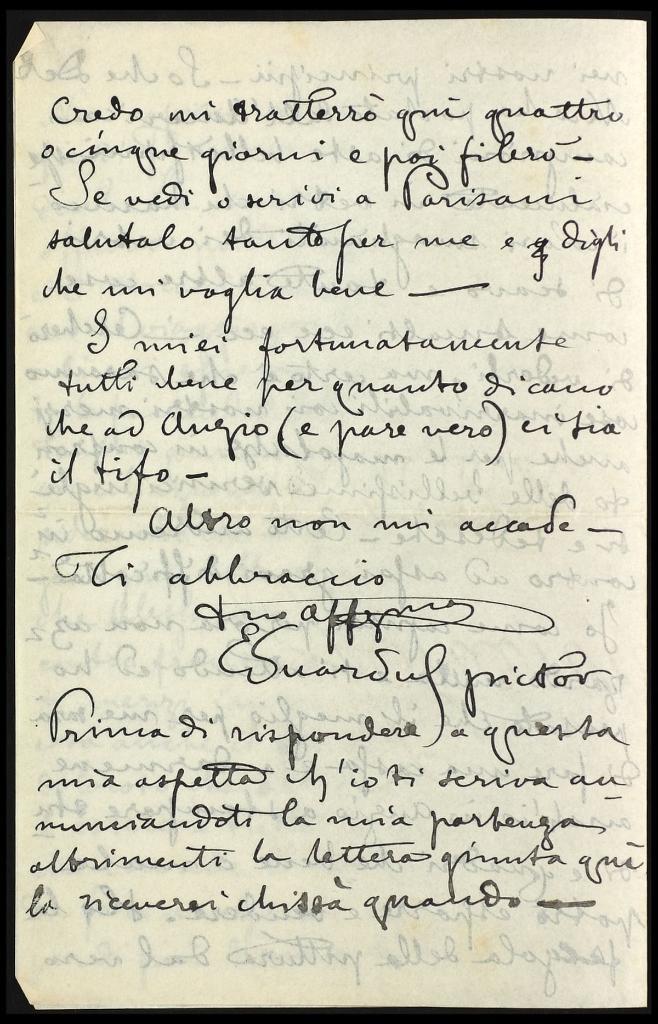 Credo mi tratterrò quì quattro
o cinque giorni e poi filerò –
Se vedi o scrivi a Parisani
salutalo tanto per me e digli
che mi voglia bene —
I miei fortunatamente
tutti bene per quanto dicano
che ad Anzio (e pare vero) ci sia
il tifo –
Altro non mi accade –
Ti abbraccio
tuo affmo
Eduardus pictor
Prima di rispondere a questa
mia aspetta ch'io ti scriva an
nunciandoti la mia partenza
altrimenti la lettera giunta quì
la riceverei chissà quando —